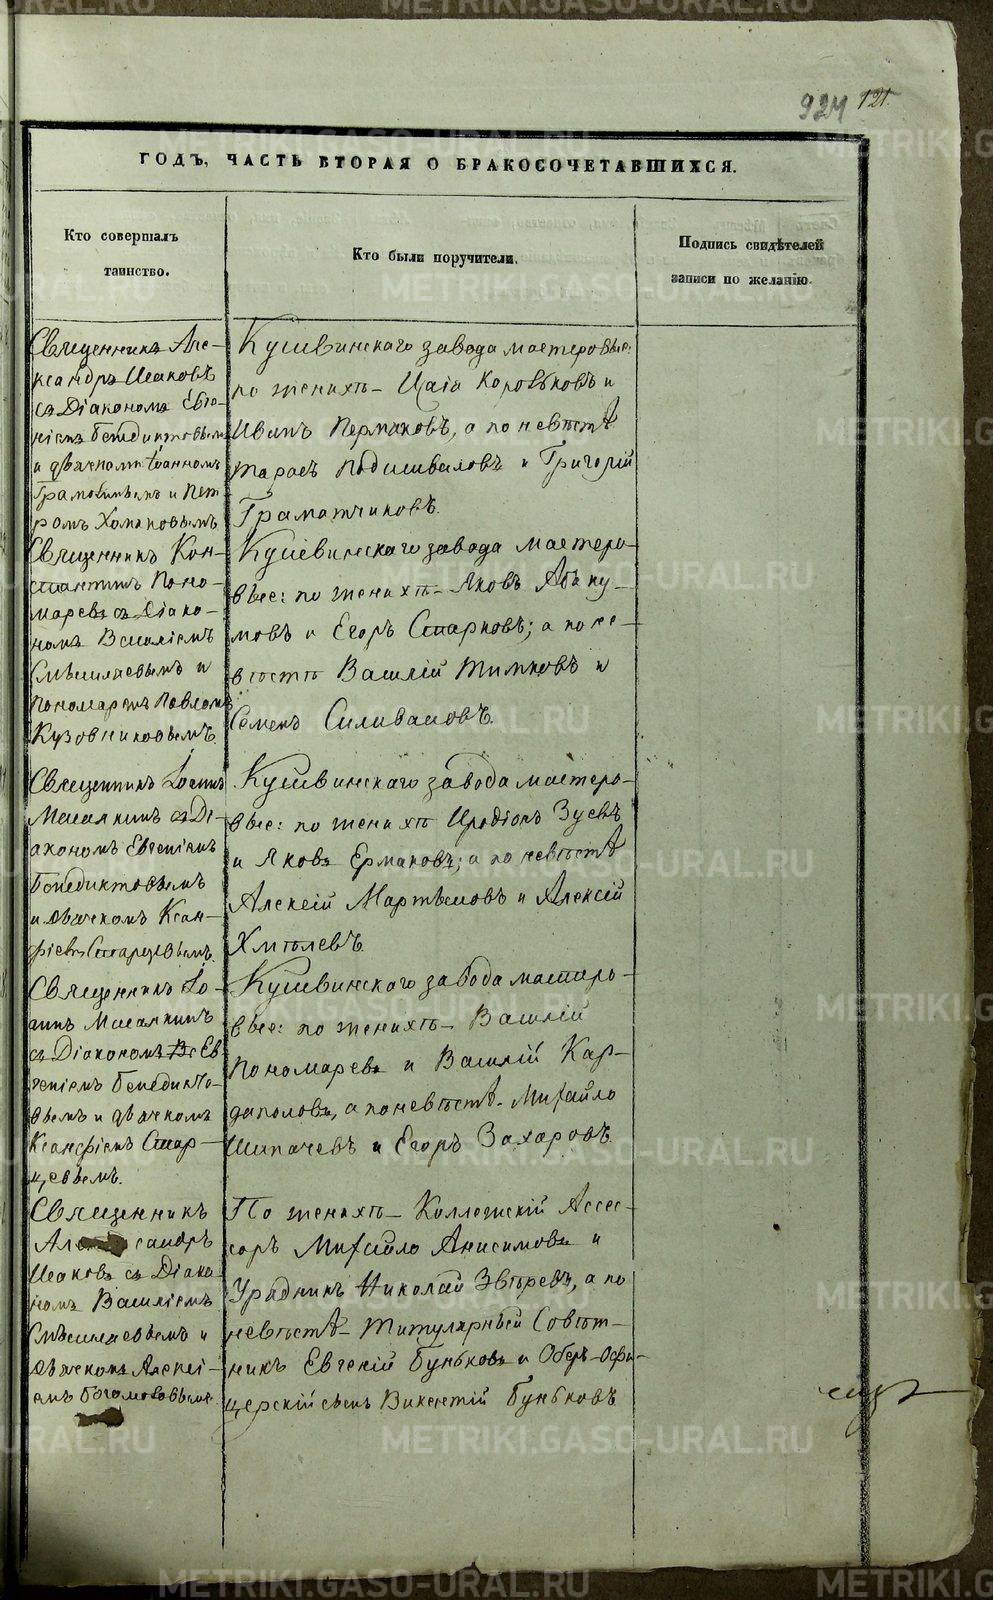 924 121
ГОДЪ, ЧАСТЬ ВТОРАЯ О БРАКОСОЧЕТАВШИХСЯ.
Кто совершалъ
таинство.
Кто были поручители.
Подпись свидѣтелей
записи по желанію.
Священникъ Але-
ксандръ Исаковъ
съ Діакономъ Евге-
ніемъ Бенедиктовымъ
и дьячкомъ Іоанномъ
и Пет-
ромъ Хомяковымъ
Кушвинскаго завода мастеровые:
по женихѣ - Исаія Коровьковъ и
Иванъ Пермяковъ, а по невѣстѣ
Тарасъ Подшиваловъ и Григорій
Граматчиковъ.
Священникъ Кон-
стантинъ Поно-
маревъ съ Діако-
номъ Василіемъ
Смышляевымъ и
пономаремъ Павломъ
Кузовниковымъ.
Кушвинскаго завода мастеро-
вые: по женихѣ - Яковъ Абаку-
мовъ и Егоръ Старковъ; а по не-
вѣстѣ Василій Тимковъ и
Семенъ Силивановъ.
Священникъ Логинъ
Масалкинъ съ Ді-
акономъ Евгеніемъ
Бенедиктовымъ
и дьячкомъ Ксан-
фіемъ Старцовымъ.
Кушвинскаго завода мастеро-
вые: по женихѣ Иродіонъ Зуевъ
и Яковъ Ермаковъ; а по невѣстѣ
Алексій Мартьяновъ и Алексій
Хмѣлевъ
Священникъ Ло-
гинъ Масалкинъ
съ Діакономъ Ев-
геніемъ Бенедикто-
вымъ и дьячкомъ
Ксанфіемъ Стар-
цевымъ.
Кушвинскаго завода мастеро-
вые: по женихѣ - Василій
Пономаревъ и Василій Кар-
даполовъ, а по невѣстѣ - Михайло
Шипачевъ и Егоръ Захаровъ.
Священникъ
Александръ
Исаковъ съ Діако-
номъ Василіемъ
Смышляевымъ и
дьячкомъ Алексі-
емъ Богомоловымъ
По женихѣ - Коллежскій Ассес-
соръ Михайло Анисимовъ и
Урядникъ Николай Звѣревъ, а по
невѣстѣ - Титулярный Совѣт-
никъ Евгеній Буньковъ и Оберъ-Офи-
церскій сынъ Викентій Буньковъ
METRIKI.GASO-URAL.RU